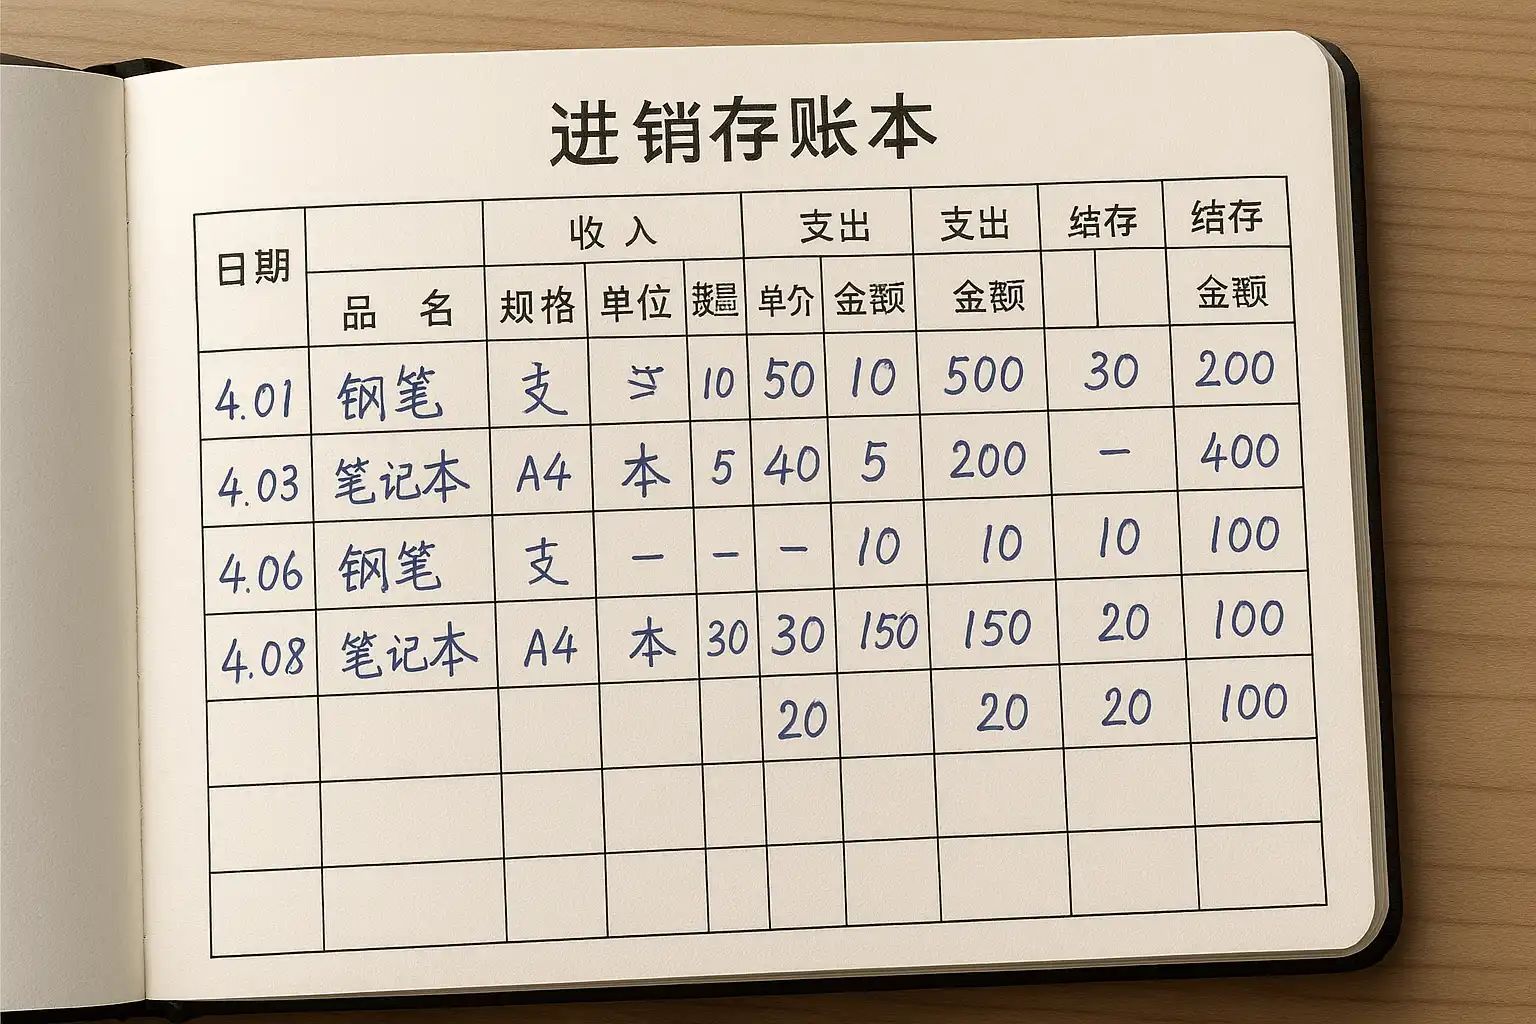 进销存账本
日期 收入 支出 支出 结存 结存
品名 规格 单位 单介 金额 金额 金额
4.01 钢笔 支 10 50 10 500 30 200
4.03 笔记本 A4 本 5 40 5 200 — 400
4.06 钢笔 支 — — — 10 10 10 100
4.08 笔记本 A4 本 30 30 150 150 20 100
20 20 20 100